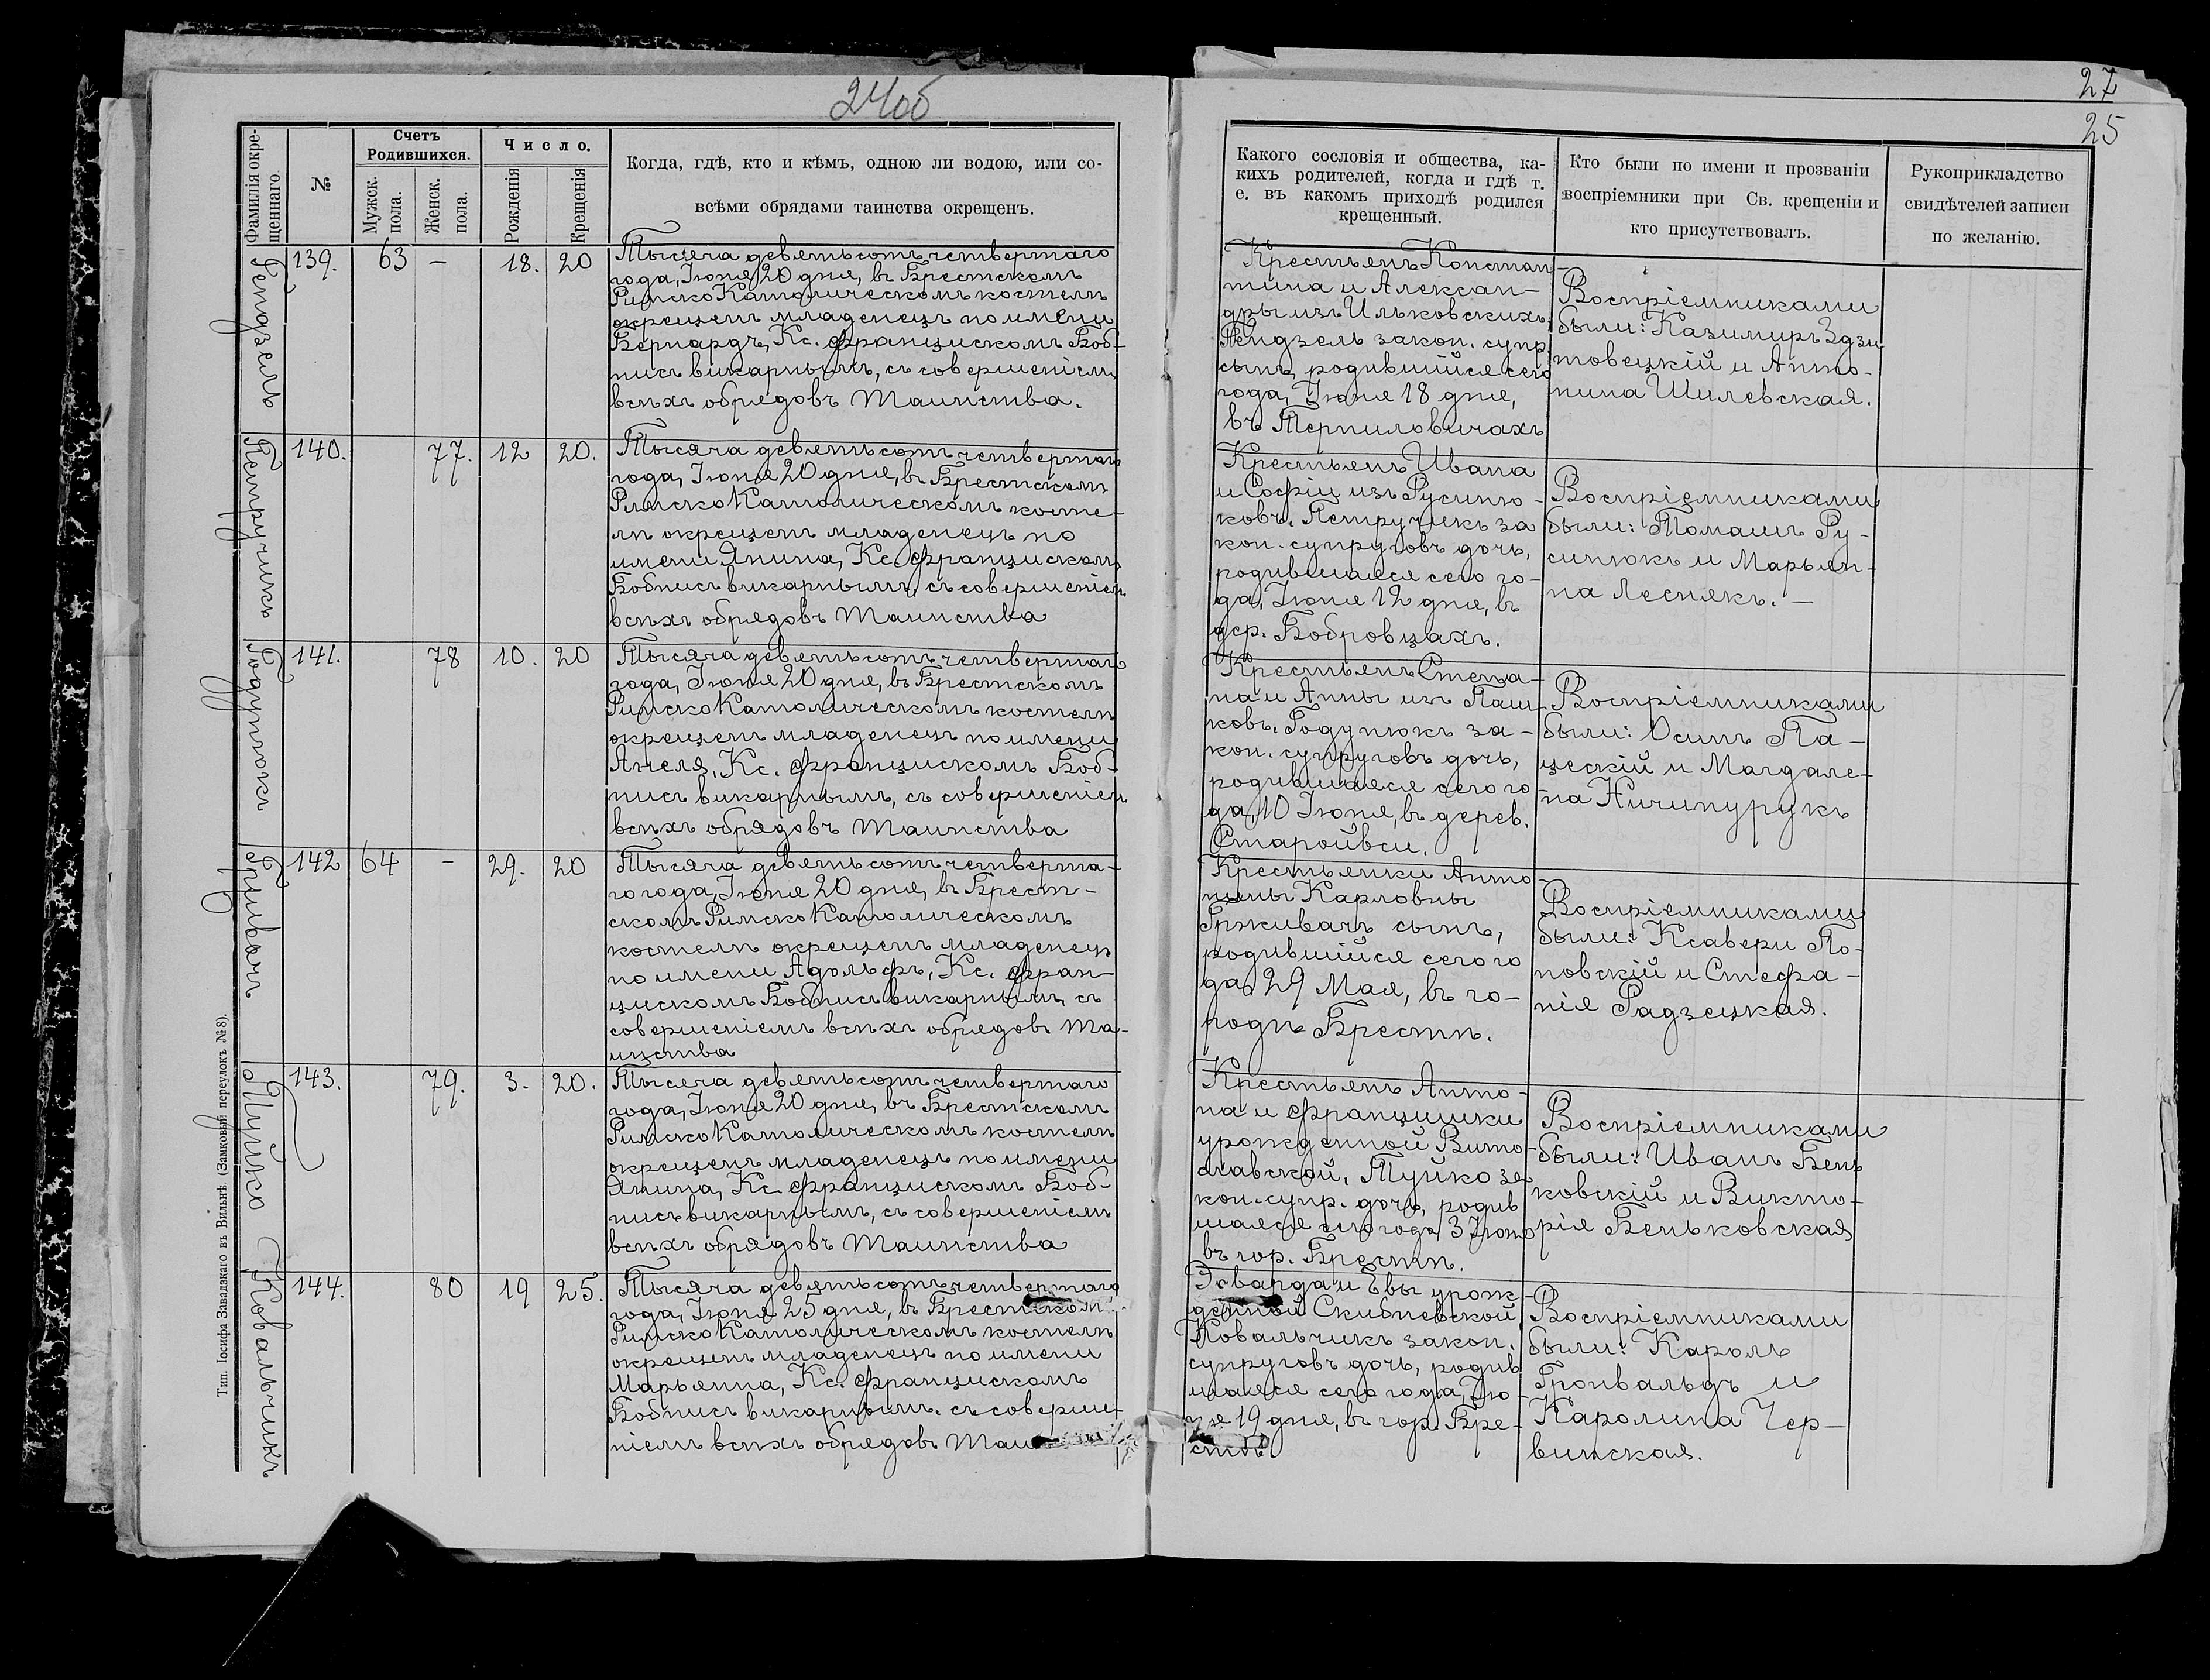 24об
27
25
Фамилія окре-
щеннаго.
№
Счетъ
Родившихся.
Мужск.
пола.
Женск.
пола.
Число.
Рожденія
Крещенія
Когда, гдѣ, кто и кѣмъ, одною ли водою, или со-
всѣми обрядами таинства окрещенъ.
Какого сословія и общества, ка-
кихъ родителей, когда и гдѣ т.
е. въ какомъ приходѣ родился
крещенный.
Кто были по имени и прозванію
воспріемники при Св. крещеніи и
кто присутствовалъ.
Рукоприкладство
свидѣтелей записи
по желанію.
139.
63
—
18.
20
Тысяча девятьсотъ четвертаго
года, Іюня 20 дня, въ Брестскомъ
Римско Католическомъ костелѣ
окрещенъ младенецъ по имени
Бернардъ, Кс. Францискомъ Боб-
нисъ викарнымъ, съ совершеніемъ
всѣхъ обрядовъ Таинства.
Крестьянъ Констан-
тина и Алексан-
дры изъ Ильковскихъ
закон. супр.
сынъ, родившійся сего
года, Іюня 18 дня,
въ Терпиловичахъ
Воспріемниками
были: Казимиръ Здзи
товецкій и Анто-
нина Шилевская.
Петручикъ
140.
77.
12
20.
Тысяча девятьсотъ четвертаго
года, Іюня 20 дня, въ Брестскомъ
Римско Католическомъ косте-
лѣ окрещенъ младенецъ по
имени Янина, Кс. Францискомъ
Бобнисъ викарнымъ, съ совершеніемъ
всѣхъ обрядовъ Таинства
Крестьянъ Ивана
и Софіи изъ Русиню-
ковъ, Петручикъ за
кон. супруговъ дочь,
родившаяся сего го-
да, Іюня 12 дня, въ
дер. Бобровцахъ.
Воспріемниками
были: Томашъ Ру-
синюкъ и Марьян-
на Леснякъ. —
Годунюкъ
141.
78
10.
20
Тысяча девятьсотъ четвертаго
года, Іюня 20 дня, въ Брестскомъ
Римско Католическомъ костелѣ
окрещенъ младенецъ по имени
Анеля, Кс. Францискомъ Боб-
нисъ викарнымъ, съ совершеніемъ
всѣхъ обрядовъ Таинства
Крестьянъ Степа-
на и Анны изъ Паш-
ковъ, Годунюкъ за-
кон. супруговъ дочь,
родившаяся сего го
да, 10 Іюня, въ дерев.
Старойвси.
Воспріемниками
были: Осипъ Па-
цескій и Магдале-
на Ничипурукъ
142
64
—
29.
20
Тысяча девятьсотъ четверта-
го года, Іюня 20 дня, въ Брест-
скомъ Римско Католическомъ
костелѣ окрещенъ младенецъ
по имени Адольфъ, Кс. Фран-
цискомъ Бобнисъ викарнымъ, съ
совершеніемъ всѣхъ обрядовъ Та-
инства
Крестьянки Анто-
нины Карловны
Грживачъ сынъ,
родившійся сего го
да, 29 Мая, въ го-
родѣ Брестѣ.
Воспріемниками
были: Ксавери По-
новскій и Стефа-
нія Радзецкая.
Туйко
143.
79.
3.
20.
Тысяча девятьсотъ четвертаго
года, Іюня 20 дня, въ Брестскомъ
Римско Католическомъ костелѣ
окрещенъ младенецъ по имени
Янина, Кс. Францискомъ Боб-
нисъ викарнымъ, съ совершеніемъ
всѣхъ обрядовъ Таинства
Крестьянъ Анто-
на и Францишки
урожденной Вито-
славской, Туйко за
кон. супр. дочь, родив
шаяся сего года, 3 Іюня
въ гор. Брестѣ.
Воспріемниками
были: Иванъ Бень
ковскій и Викто-
рія Беньковская
Ковальчикъ
144.
80
19
25.
Тысяча девятьсотъ четвертаго
года, Іюня 25 дня, въ Брестскомъ
Римско Католическомъ костелѣ
окрещенъ младенецъ по имени
Марьянна, Кс. Францискомъ
Бобнисъ викарнымъ, съ соверше-
ніемъ всѣхъ обрядовъ
Эдварда и Евы урож-
денной Скибневской,
Ковальчикъ закон.
супруговъ дочь, родив
шаяся сего года, Ію-
ня 19 дня, въ гор. Бре-
стѣ.
Воспріемниками
были: Кароль
Гронвальдъ и
Каролина Чер-
винская.
Тип. Іосифа Завадзкаго въ Вильнѣ. (Замковый переулокъ №8).